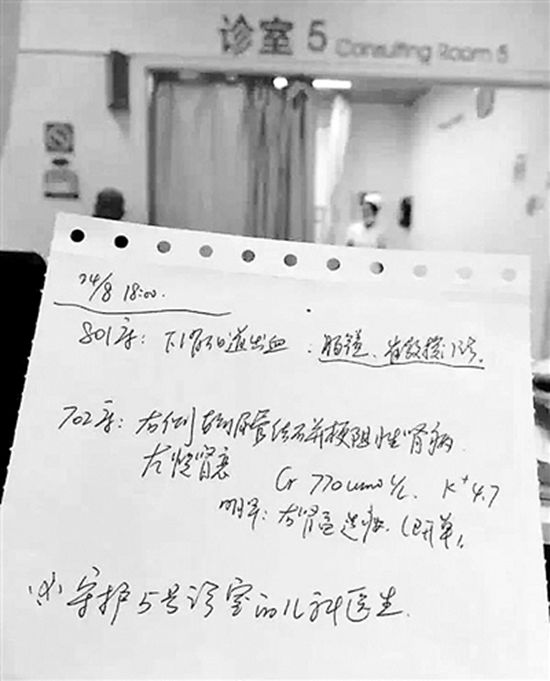 诊室 5 Consulting Room 5
24/8 18:00.
801床: 下消化道出血: 肠镜、
702床: 右侧输尿管结石并梗阻性肾病
Cr 770umol/L. K⁺ 4.7
明早: 右肾
守护5号诊室的儿科医生.